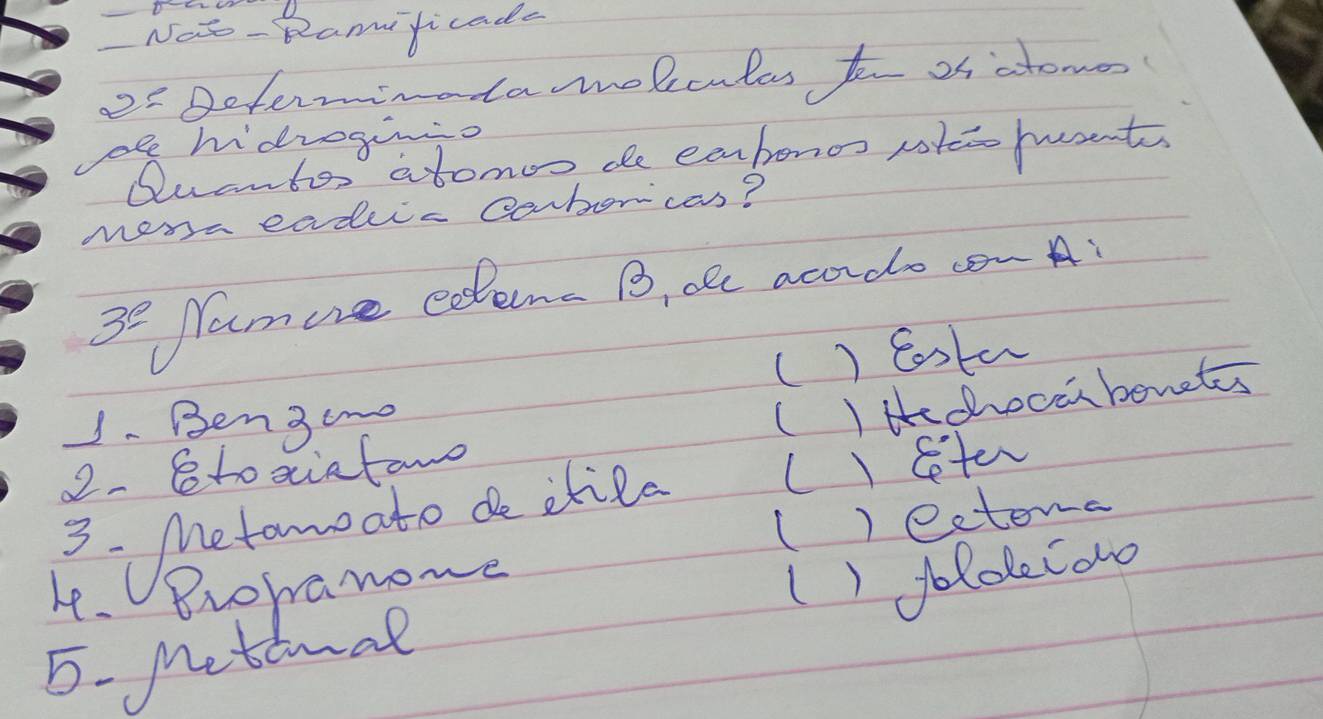 - Não - Ramificada
2º Determinada moleculas tem 24 átomos
de hidrogênio
Quantos átomos de carbonos estão presentes
nessa cadeia Carbonicas?
3º Numere coluna B, de acordo com A:
1. Benzeno
2- Etoxietano
3- Metanoato de etila
4. Propanona
5- Metanal
( ) Ester
( ) Hidrocárbonetos
( ) Éter
( ) Cetona
( ) Aldeído